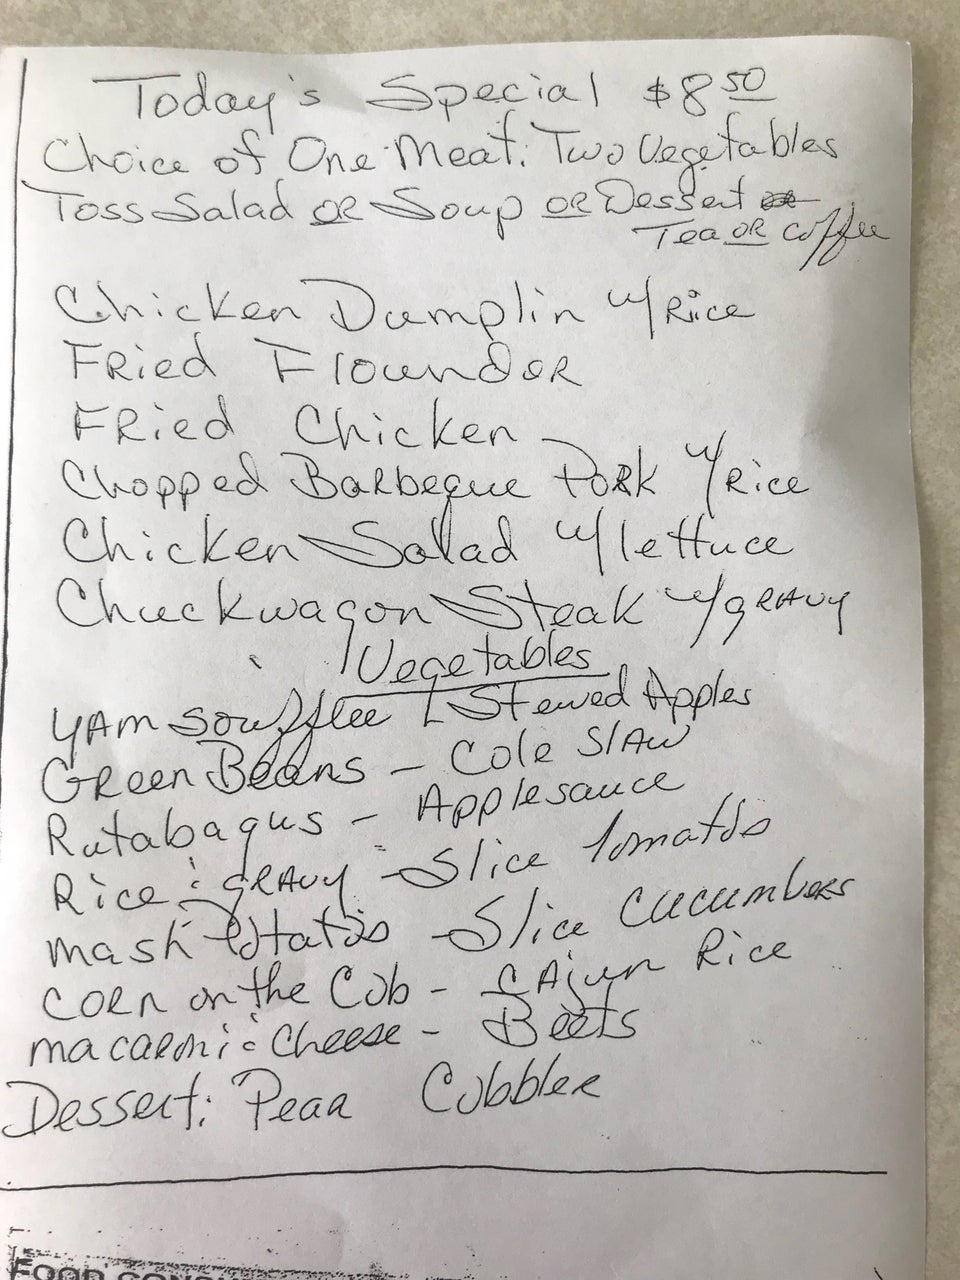 Today's Special $8.50
Choice of One Meat: Two Vegetables
Toss Salad OR Soup OR Dessert
Tea OR Coffee
Chicken Dumplin w/Rice
FRied FlounDeR
FRied Chicken
Chopped Barbeque Pork w/Rice
Chicken Salad w/lettuce
Chuckwagon Steak w/gRAvy
Vegetables
YAM Soufflee - Stewed Apples
GReen Beans - Cole SlAw
Rutabagus - Applesauce
Rice & gRAvy - Slice Tomatos
mash Potatos - Slice Cucumbers
CORn on the Cob - CAjun Rice
macaroni & Cheese - Beets
Dessert: Pear Cobbler
FOOD